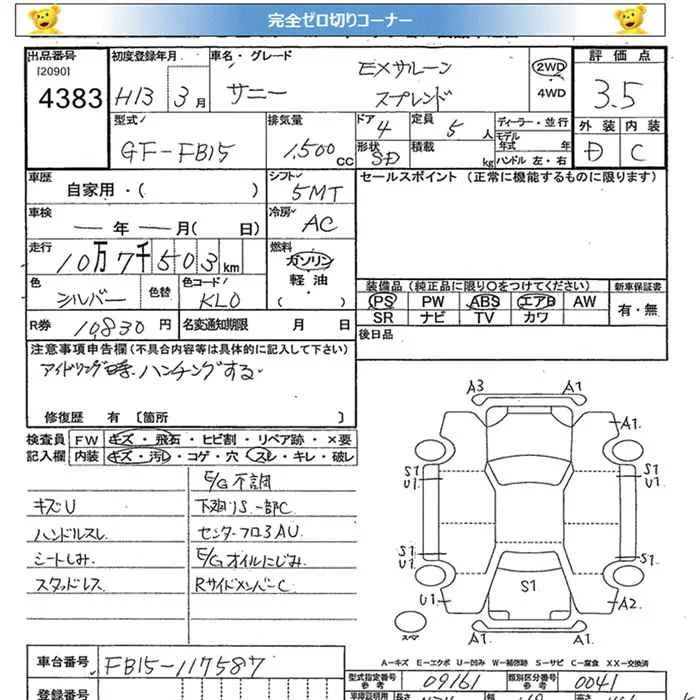 完全ゼロ切りコーナー
出品番号
[2090]
4383
初度登録年月
H13 3月
車名・グレード
サニー
EXサルーン
スプレンド
2WD
4WD
評価点
3.5
外装 内装
D C
型式
GF-FB15
排気量
1,500 cc
ドア 4
形状 SD
定員 5 人
積載 kg
ディーラー・並行
モデル年式 年
ハンドル 左・右
車歴
自家用・( )
シフト
5MT
セールスポイント (正常に機能するものに限ります)
車検
— 年 — 月( 日)
冷房
AC
走行
10万7千503km
燃料
ガソリン
軽油
( )
色
シルバー
色替
色コード
KL0
装備品 (純正品に限り○をつけてください)
新車保証書
PS PW ABS エアB AW
有・無
SR ナビ TV カワ
R券 10,830円
名変通知期限 月 日
後日品
注意事項申告欄(不具合内容等は具体的に記入して下さい)
アイドリング時、ハンチングする。
修復歴 有 [箇所 ]
検査員
記入欄
FW キズ・飛石・ヒビ割・リペア跡・×要
内装 キズ・汚レ・コゲ・穴・スレ・キレ・破レ
E/G不調
キズU
下廻りS一部C
ハンドルスレ
センターフロアAU
シートしみ
E/Gオイルにじみ
スタッドレス
RサイドメンバーC
A3 A1
A1
S1
U1
S1
U1
S1
U1
S1
U1
S1
A2
スペア
A1 A1
A—キズ E—エクボ U—凹み W—補修跡 S—サビ C—腐食 XX—交換済
車台番号
FB15-117587
型式指定番号
参考
09161
類別区分番号
参考
0041
登録番号
車庫証明用
長さ
幅
高さ